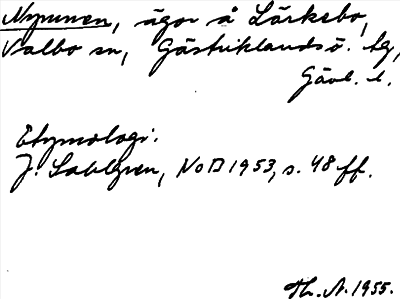 Nypunen, ägor å Lärkebo,
Valbo sn, Gästriklands ö. tg,
Gävl. l.
Etymologi:
J. Sahlgren, NoB 1953, s. 48 ff.
Th. A. 1955.